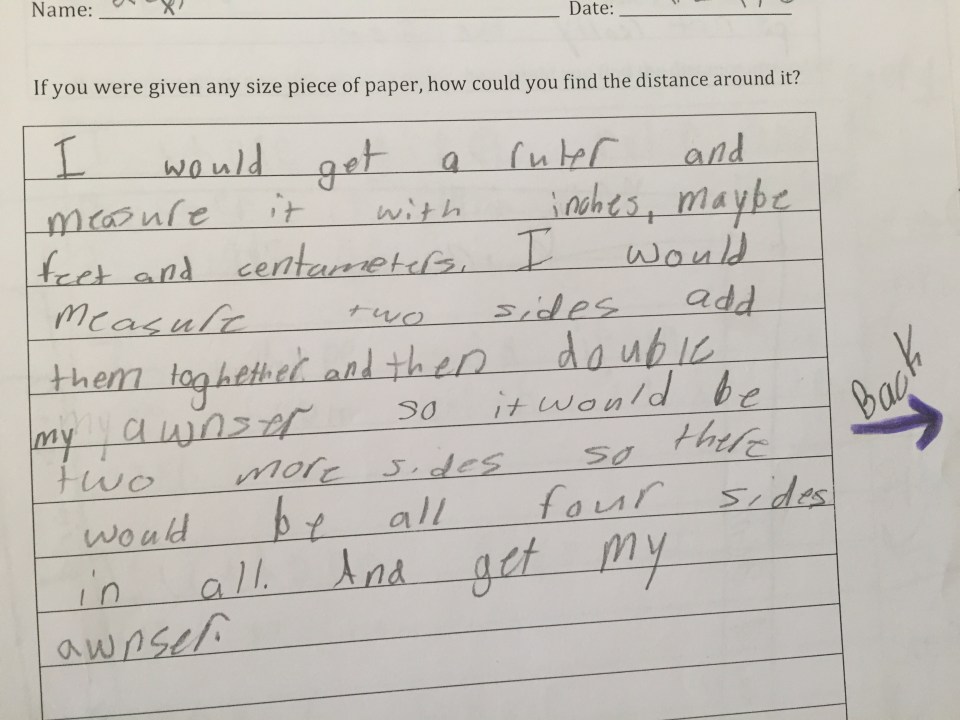 Name: Date:
If you were given any size piece of paper, how could you find the distance around it?
I would get a ruler and
measure it with inches, maybe
feet and centameters. I would
measure two sides add
them toghether and then double
my awnser so it would be
two more sides so there
would be all four sides
in all. And get my
awnser.
Back